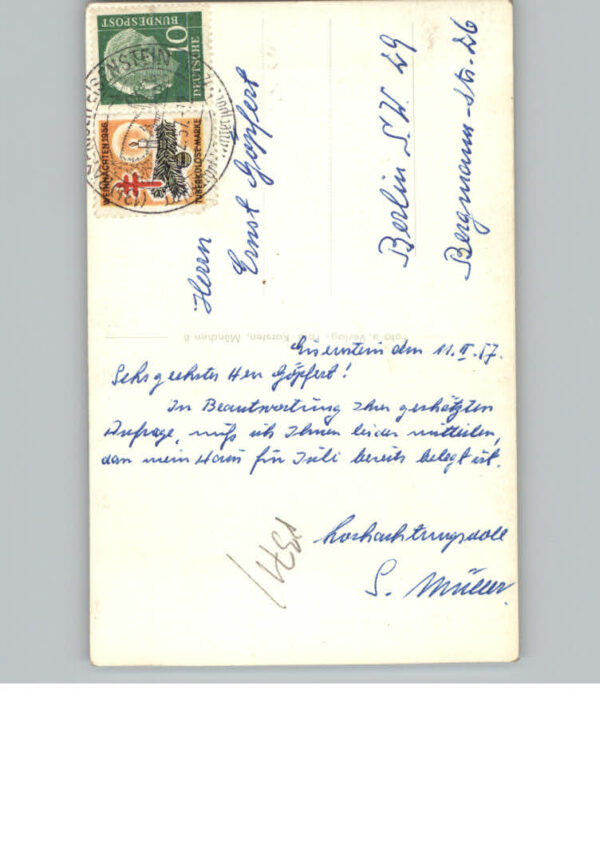 DEUTSCHE
BUNDESPOST
10
WEIHNACHTEN 1956
TUBERKULOSE-MARKE
EISENSTEIN
Herrn
Ernst Göpfert
Berlin S.W. 29
Bergmann-Str. 26
Foto u. Verlag, Karsten, München 8
Eisenstein den 11.II.57.
Sehr geehrter Herr Göpfert!
In Beantwortung Ihrer geschätzten
Anfrage, muß ich Ihnen leider mitteilen,
dass mein Haus für Juli bereits belegt ist.
Hochachtungsvoll
S. Müller.